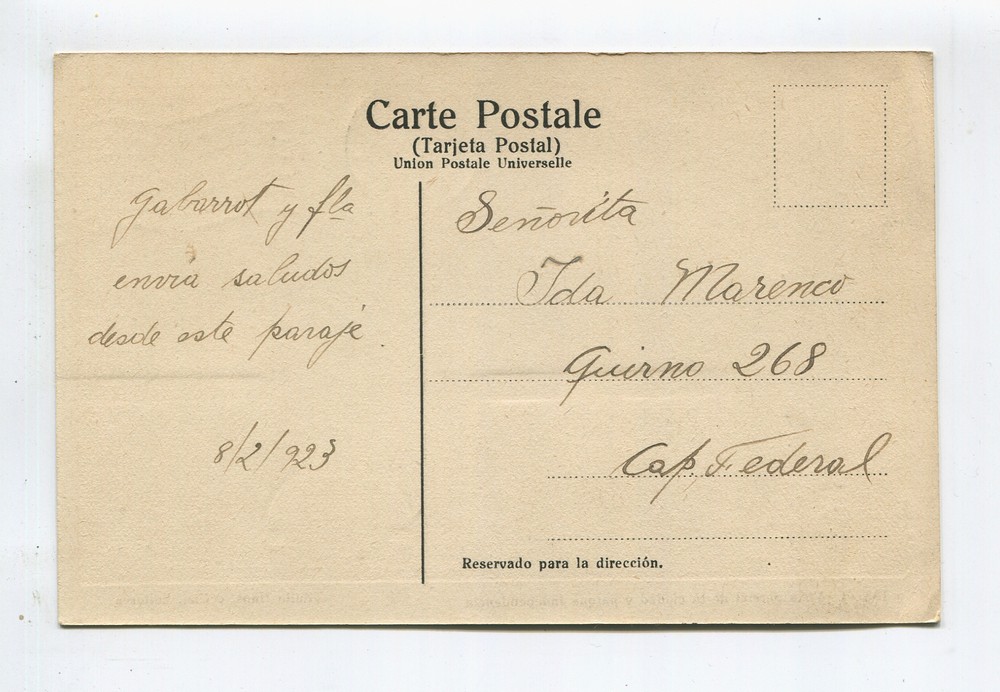 Carte Postale
(Tarjeta Postal)
Union Postale Universelle
Gabarrot y fla
envia saludos
desde este paraje.
8/2/923
Señorita
Ida Marenco
Quirno 268
Cap. Federal
Reservado para la dirección.